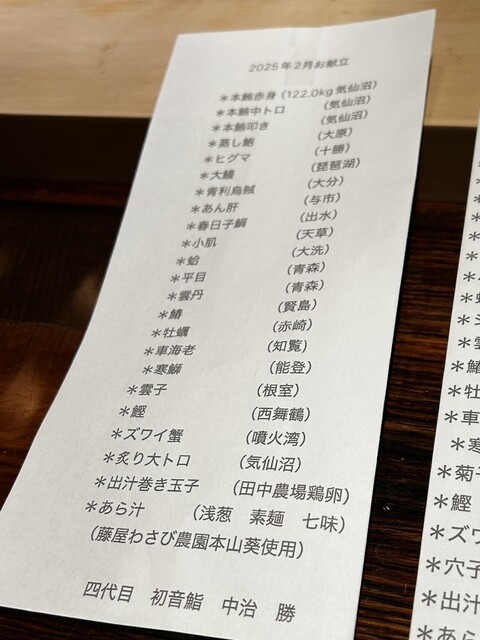 2025年2月お献立
＊本鮪赤身（122.0kg 気仙沼）
＊本鮪中トロ （気仙沼）
＊本鮪叩き （気仙沼）
＊蒸し鮑 （大原）
＊ヒグマ （十勝）
＊大鰻 （琵琶湖）
＊青利烏賊 （大分）
＊あん肝 （与市）
＊春日子鯛 （出水）
＊小肌 （天草）
＊蛤 （大洗）
＊平目 （青森）
＊雲丹 （青森）
＊鰆 （賢島）
＊牡蠣 （赤崎）
＊車海老 （知覧）
＊寒鰤 （能登）
＊雲子 （根室）
＊鰹 （西舞鶴）
＊ズワイ蟹 （噴火湾）
＊炙り大トロ （気仙沼）
＊出汁巻き玉子 （田中農場鶏卵）
＊あら汁 （浅葱　素麺　七味）
（藤屋わさび農園本山葵使用）
四代目　初音鮨　中治　勝
＊鰆
＊牡
＊車
＊寒
＊菊子
＊鰹
＊ズワ
＊穴子
＊出汁
＊あら